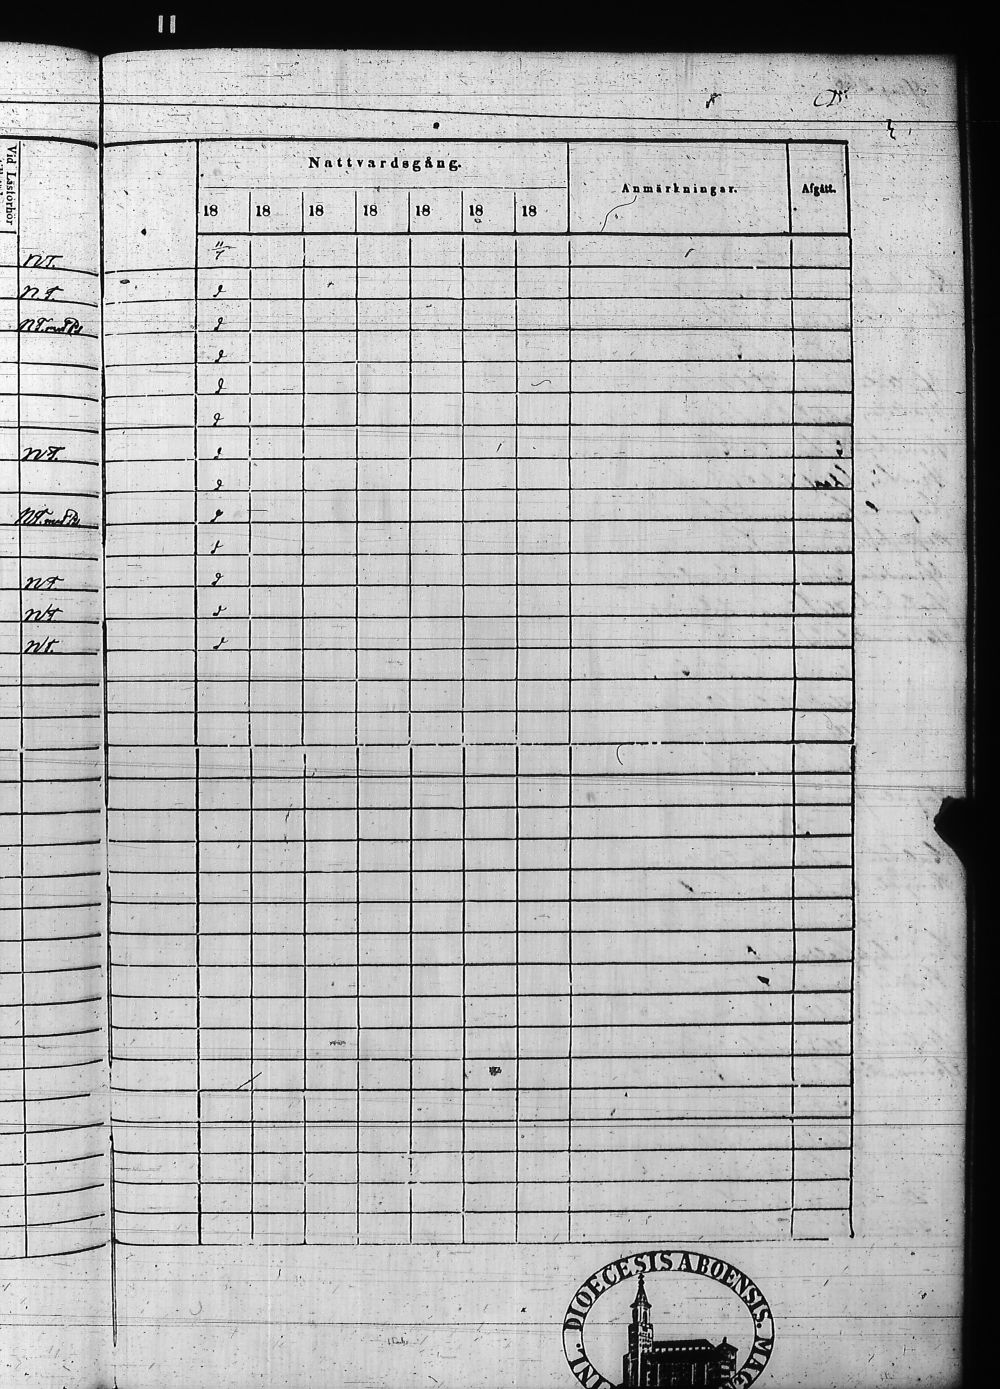 11
Vid Läsförhör
Nattvardsgång.
Anmärkningar.
Afgått.
18 18 18 18 18 18 18
NT. 11/7
NT. d
NT. med Ps d
d
d
d
NT. d
d
NT. med Ps d
d
NT d
NT d
NT. d
FINL. DIOECESIS ABOENSIS. MAG